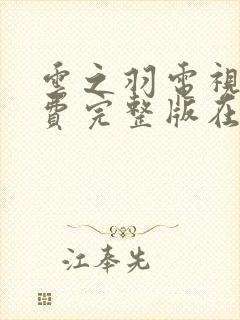 雲之羽電視
費完整版在
江奉先